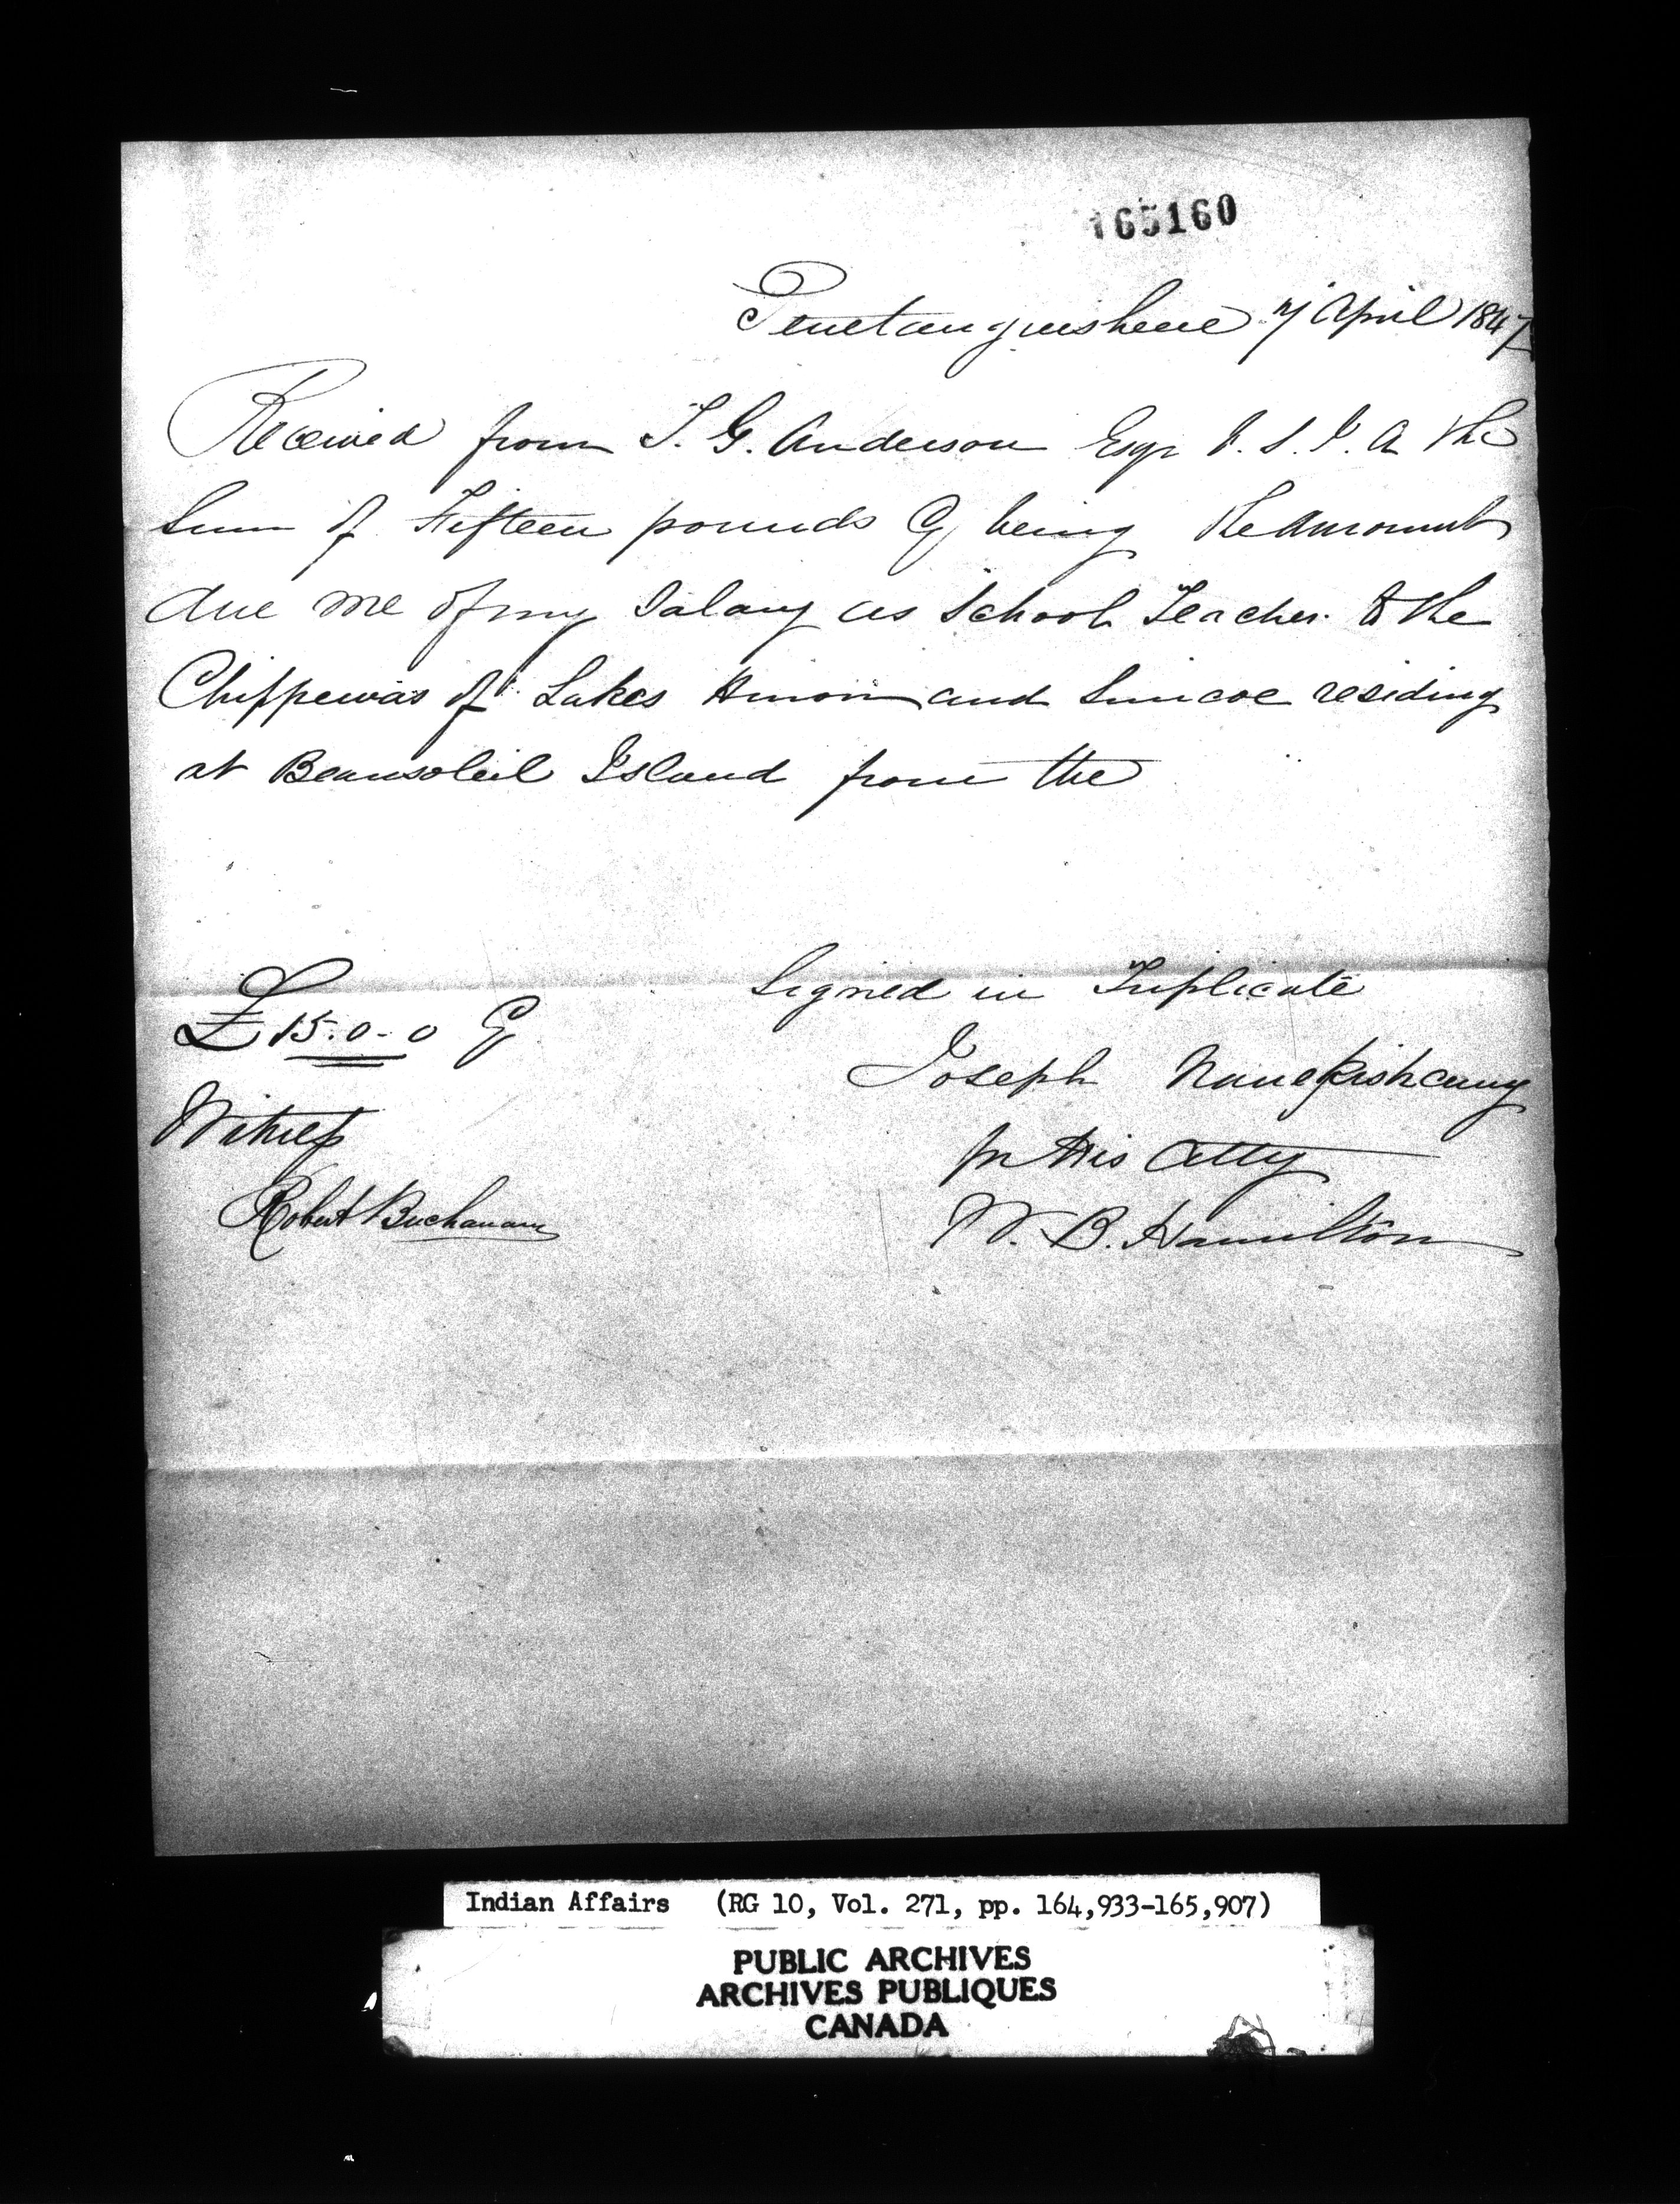 165160
Penetanguishene 7 April 1847
Received from T. G. Anderson Esqr V. S. I. A the
Sum of Fifteen pounds Cy being the amount
due me of my Salary as School Teacher to the
Chippewas of Lakes Huron and Simcoe residing
at Beausoleil Island from the
Signed in Triplicate
£15.0-0 Cy
Joseph
Witness
pr His Atty
Robert Buchanan
W. B. Hamilton
Indian Affairs (RG 10, Vol. 271, pp. 164,933-165,907)
PUBLIC ARCHIVES
ARCHIVES PUBLIQUES
CANADA